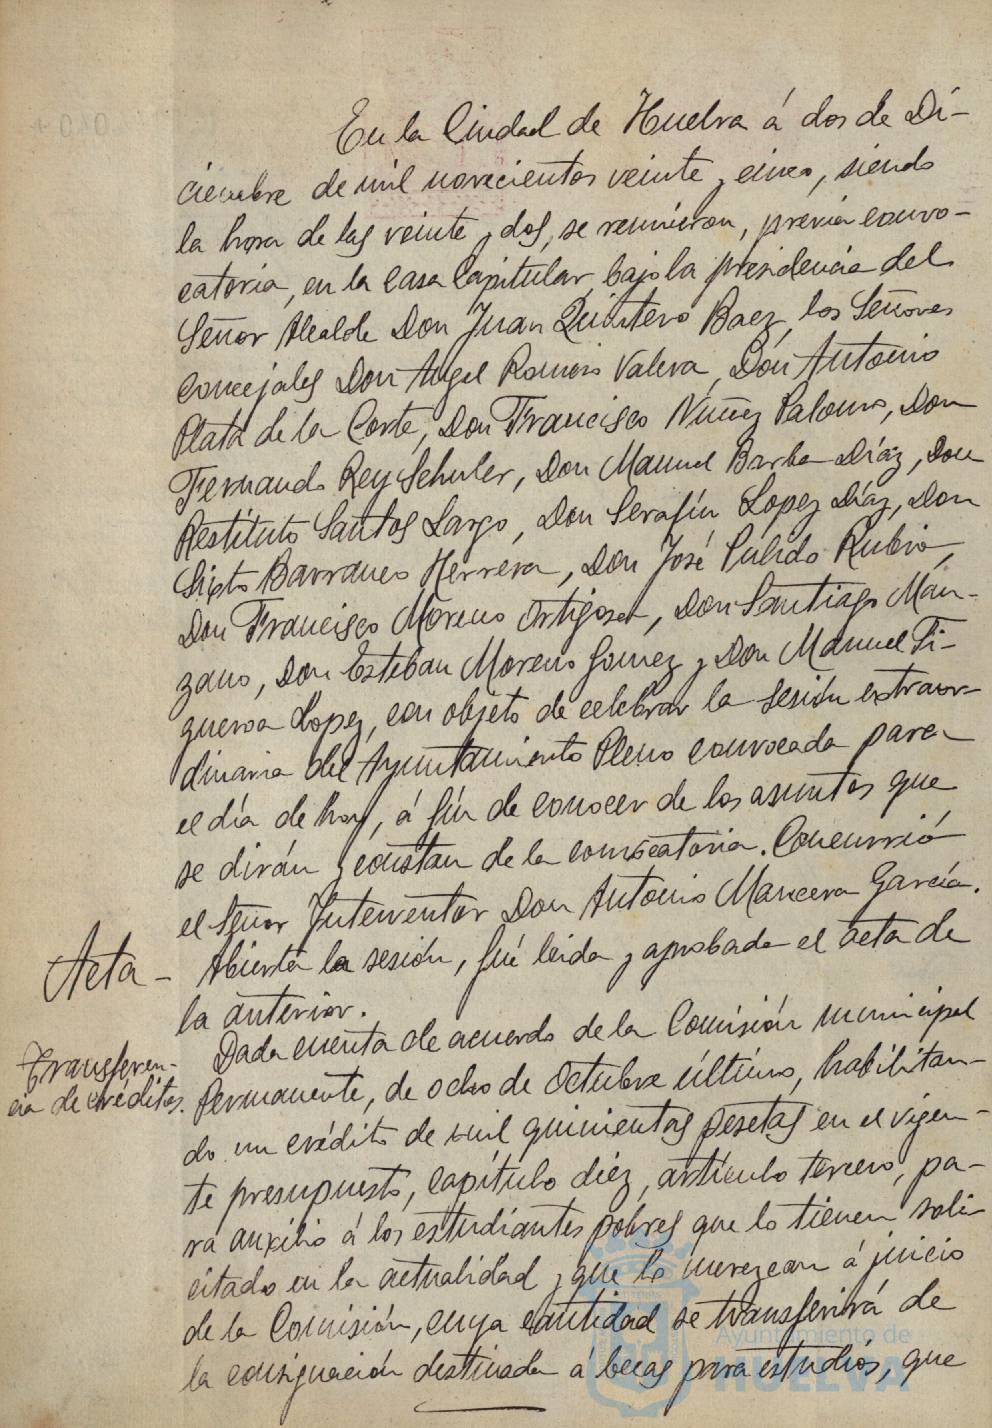 En la Ciudad de Huelva á dos de Di-
ciembre de mil novecientos veinte y cinco, siendo
la hora de las veinte y dos, se reunieron, previa convo-
catoria, en la Casa Capitular, bajo la presidencia del
Señor Alcalde Don Juan Quintero Baez, los Señores
Concejales Don Angel Romero Valera, Don Antonio
Plata de la Corte, Don Francisco Nuñez Palomo, Don
Fernando Rey Schuler, Don Manuel Barba Díaz, Don
Restituto Santos Largo, Don Serafín Lopez Díaz, Don
Sixto Barranco Herrera, Don José Pulido Rubio,
Don Francisco Moreno Ortigosa, Don Santiago Man-
zano, Don Esteban Moreno Gomez y Don Manuel Fi-
gueroa Lopez, con objeto de celebrar la sesión extraor-
dinaria del Ayuntamiento Pleno convocada para
el día de hoy, á fín de conocer de los asuntos que
se dirán y constan de la convocatoria. Concurrió
el Señor Interventor Don Antonio Mancera García.
Acta - Abierta la sesión, fué leida y aprobada el acta de
la anterior.
Transferen-
cia de créditos.
Dada cuenta de acuerdo de la Comisión municipal
Permanente, de ocho de Octubre último, habilitan-
do un crédito de mil quinientas pesetas en el vigen-
te presupuesto, capítulo diez, artículo tercero, pa-
ra auxilio á los estudiantes pobres que lo tienen soli-
citado en la actualidad y que lo merezcan á juicio
de la Comisión, cuya cantidad se transferirá de
la consignación destinada á becas para estudios, que
Ayuntamiento de
HUELVA